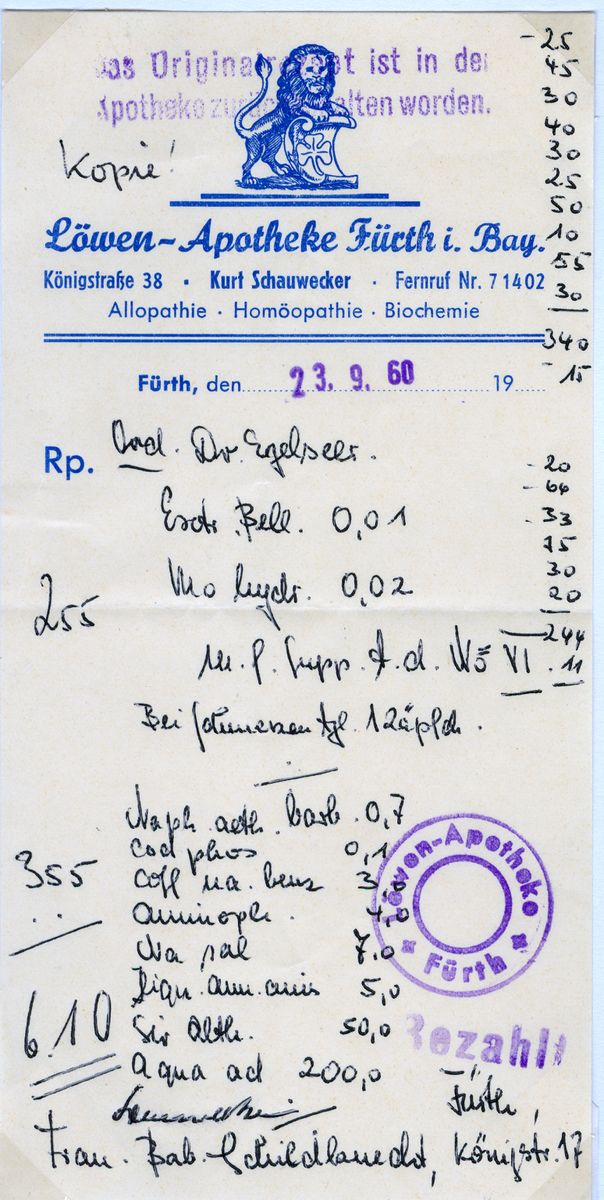 Das Originalrezept ist in der
Apotheke zurückbehalten worden.
Kopie!
Löwen-Apotheke Fürth i. Bay.
Königstraße 38 · Kurt Schauwecker · Fernruf Nr. 71402
Allopathie · Homöopathie · Biochemie
- 25
45
30
40
30
25
50
10
55
30
340
- 15
Fürth, den 23. 9. 60 19
Rp. Ord. Dr. Egelseer.
Extr. Bell. 0,01
Mo hydr. 0,02
m. f. Supp. t. d. No VI
Bei Schmerzen tgl. 1 Zäpfch.
- 20
- 64
- 33
75
30
20
244
. 11
255
Naph. aeth. barb. 0,7
Cod phos 0,1
Coff na. benz 3,0
Aminoph. 4,0
Na sal 7,0
Liqu. amm. anis 5,0
Sir Alth. 50,0
Aqua ad 200,0
355
6.10
Löwen-Apotheke
Fürth
Bezahlt
Fürth,
Frau. Bab. Schildknecht, Königstr. 17